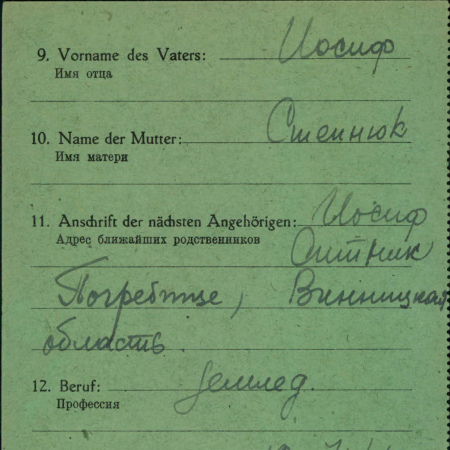 9. Vorname des Vaters: Иосиф
Имя отца
10. Name der Mutter: Стенюк
Имя матери
11. Anschrift der nächsten Angehörigen: Иосиф
Адрес ближайших родственников Ситник
Погребище, Винницкая
область.
12. Beruf: землед.
Профессия